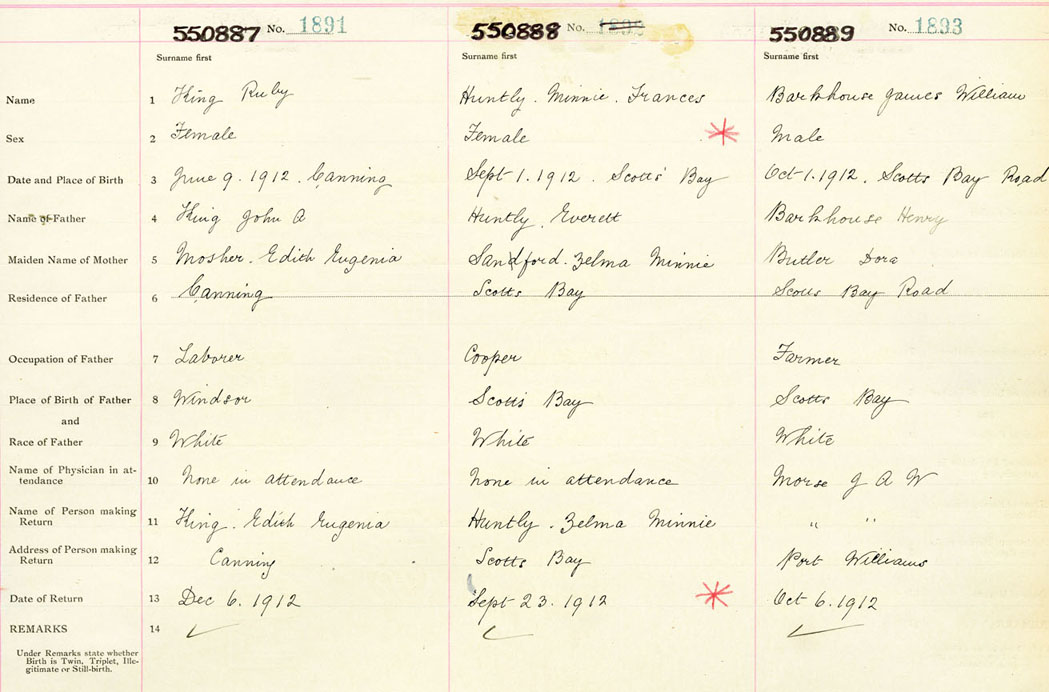 550887 No. 1891 550888 No. 550889 No. 1893
Surname first Surname first Surname first
Name 1 King Ruby Huntly. Minnie. Frances Barkhouse James William
Sex 2 Female Female Male
Date and Place of Birth 3 June 9. 1912. Canning Sept 1. 1912. Scotts' Bay Oct 1. 1912. Scotts Bay Road
Name of Father 4 King John A Huntly. Everett Barkhouse Henry
Maiden Name of Mother 5 Mosher. Edith Eugenia Sandford. Zelma Minnie Butler Dora
Residence of Father 6 Canning Scotts Bay Scotts Bay Road
Occupation of Father 7 Laborer Cooper Farmer
Place of Birth of Father 8 Windsor Scotts Bay Scotts Bay
and
Race of Father 9 White White White
Name of Physician in at-
tendance 10 None in attendance None in attendance Morse J A W
Name of Person making
Return 11 King. Edith Eugenia Huntly. Zelma Minnie " "
Address of Person making
Return 12 Canning Scotts Bay Port Williams
Date of Return 13 Dec 6. 1912 Sept 23. 1912 Oct 6. 1912
REMARKS 14
Under Remarks state whether
Birth is Twin, Triplet, Ille-
gitimate or Still-birth.